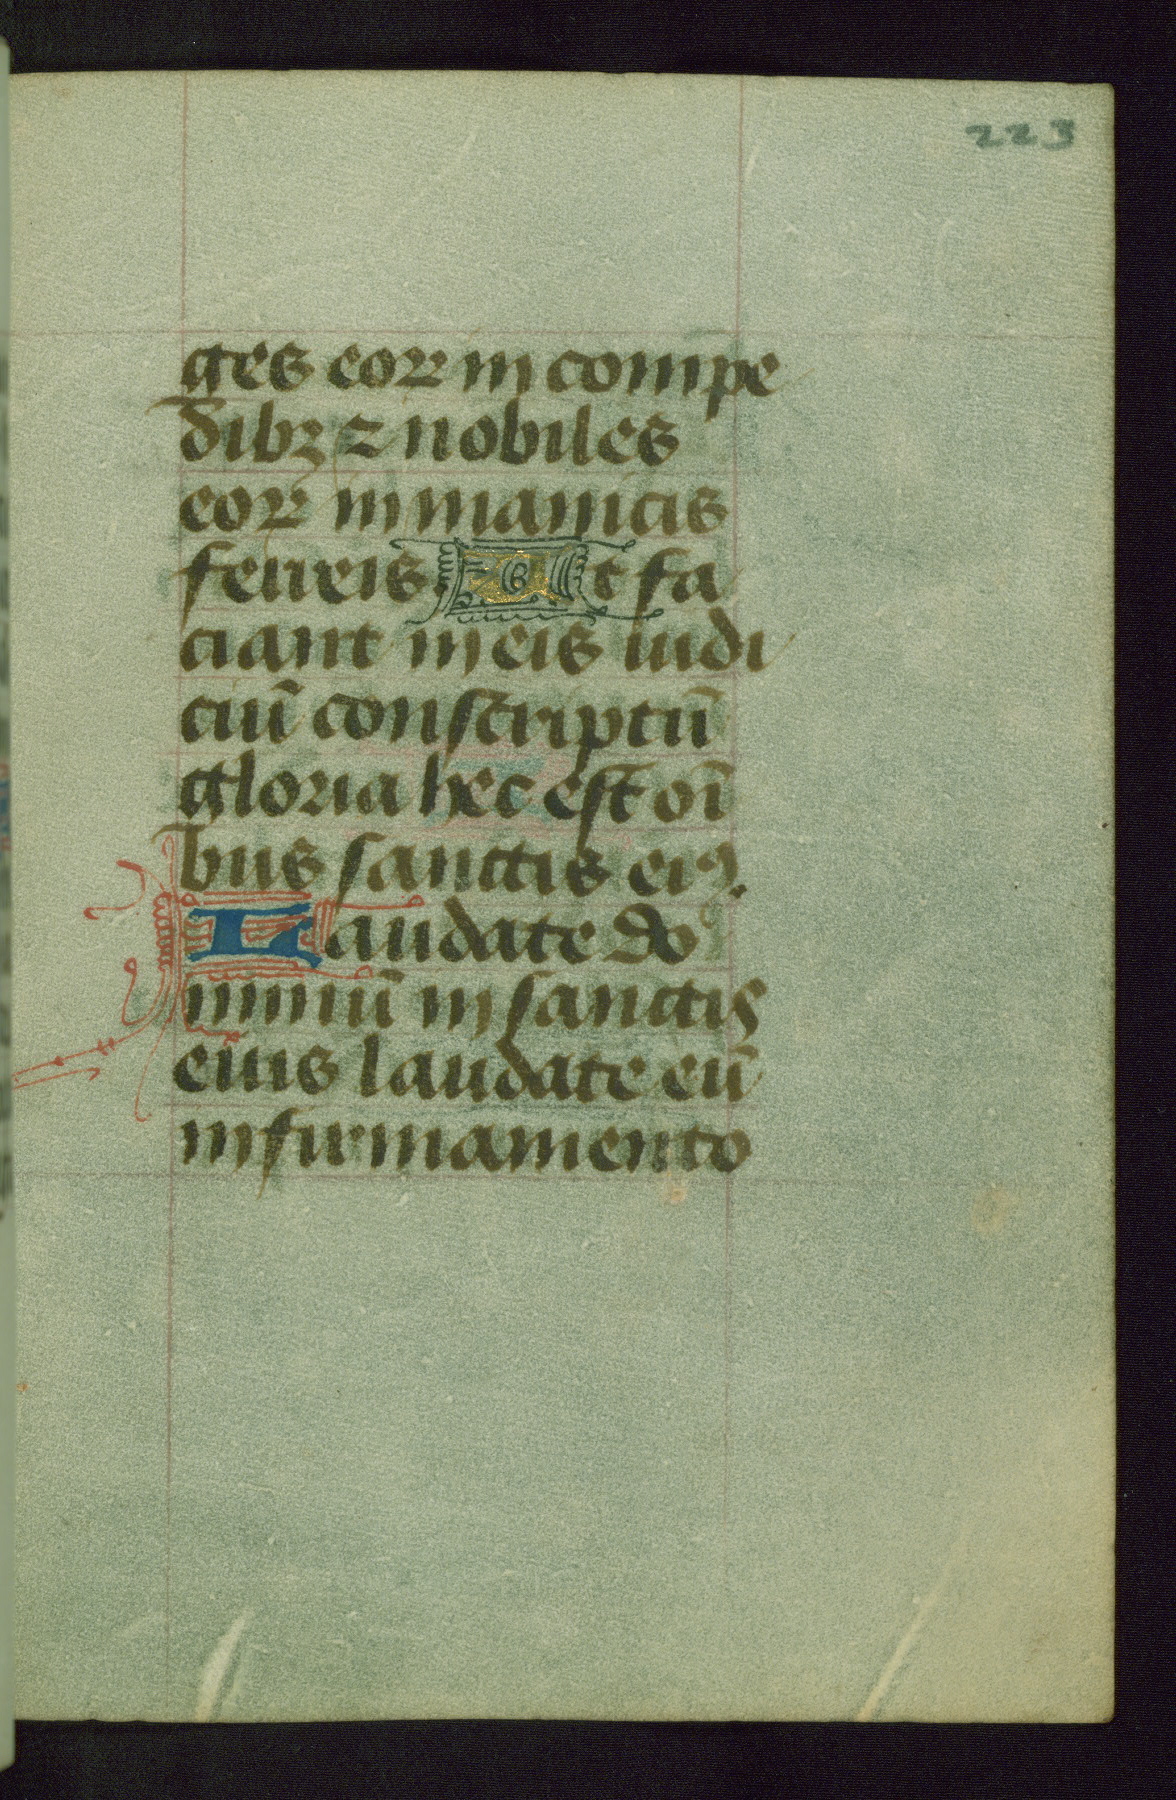 223
ges eoꝝ in compe
dibꝫ ⁊ nobiles
eoꝝ in manicis
ferreis Et fa
ciant in eis iudi
ciū conscriptū
gloria hec est oī
bus sanctis eiꝰ.
Laudate do
minū in sanctis
eius laudate eū
in firmamento